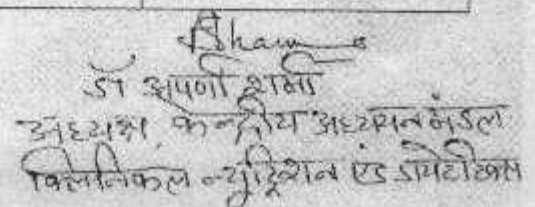 डॉ अपर्णा शर्मा
अध्यक्ष, केन्द्रीय अध्ययन मंडल
क्लिनिकल न्युट्रिशन एंड डायटेटिक्स